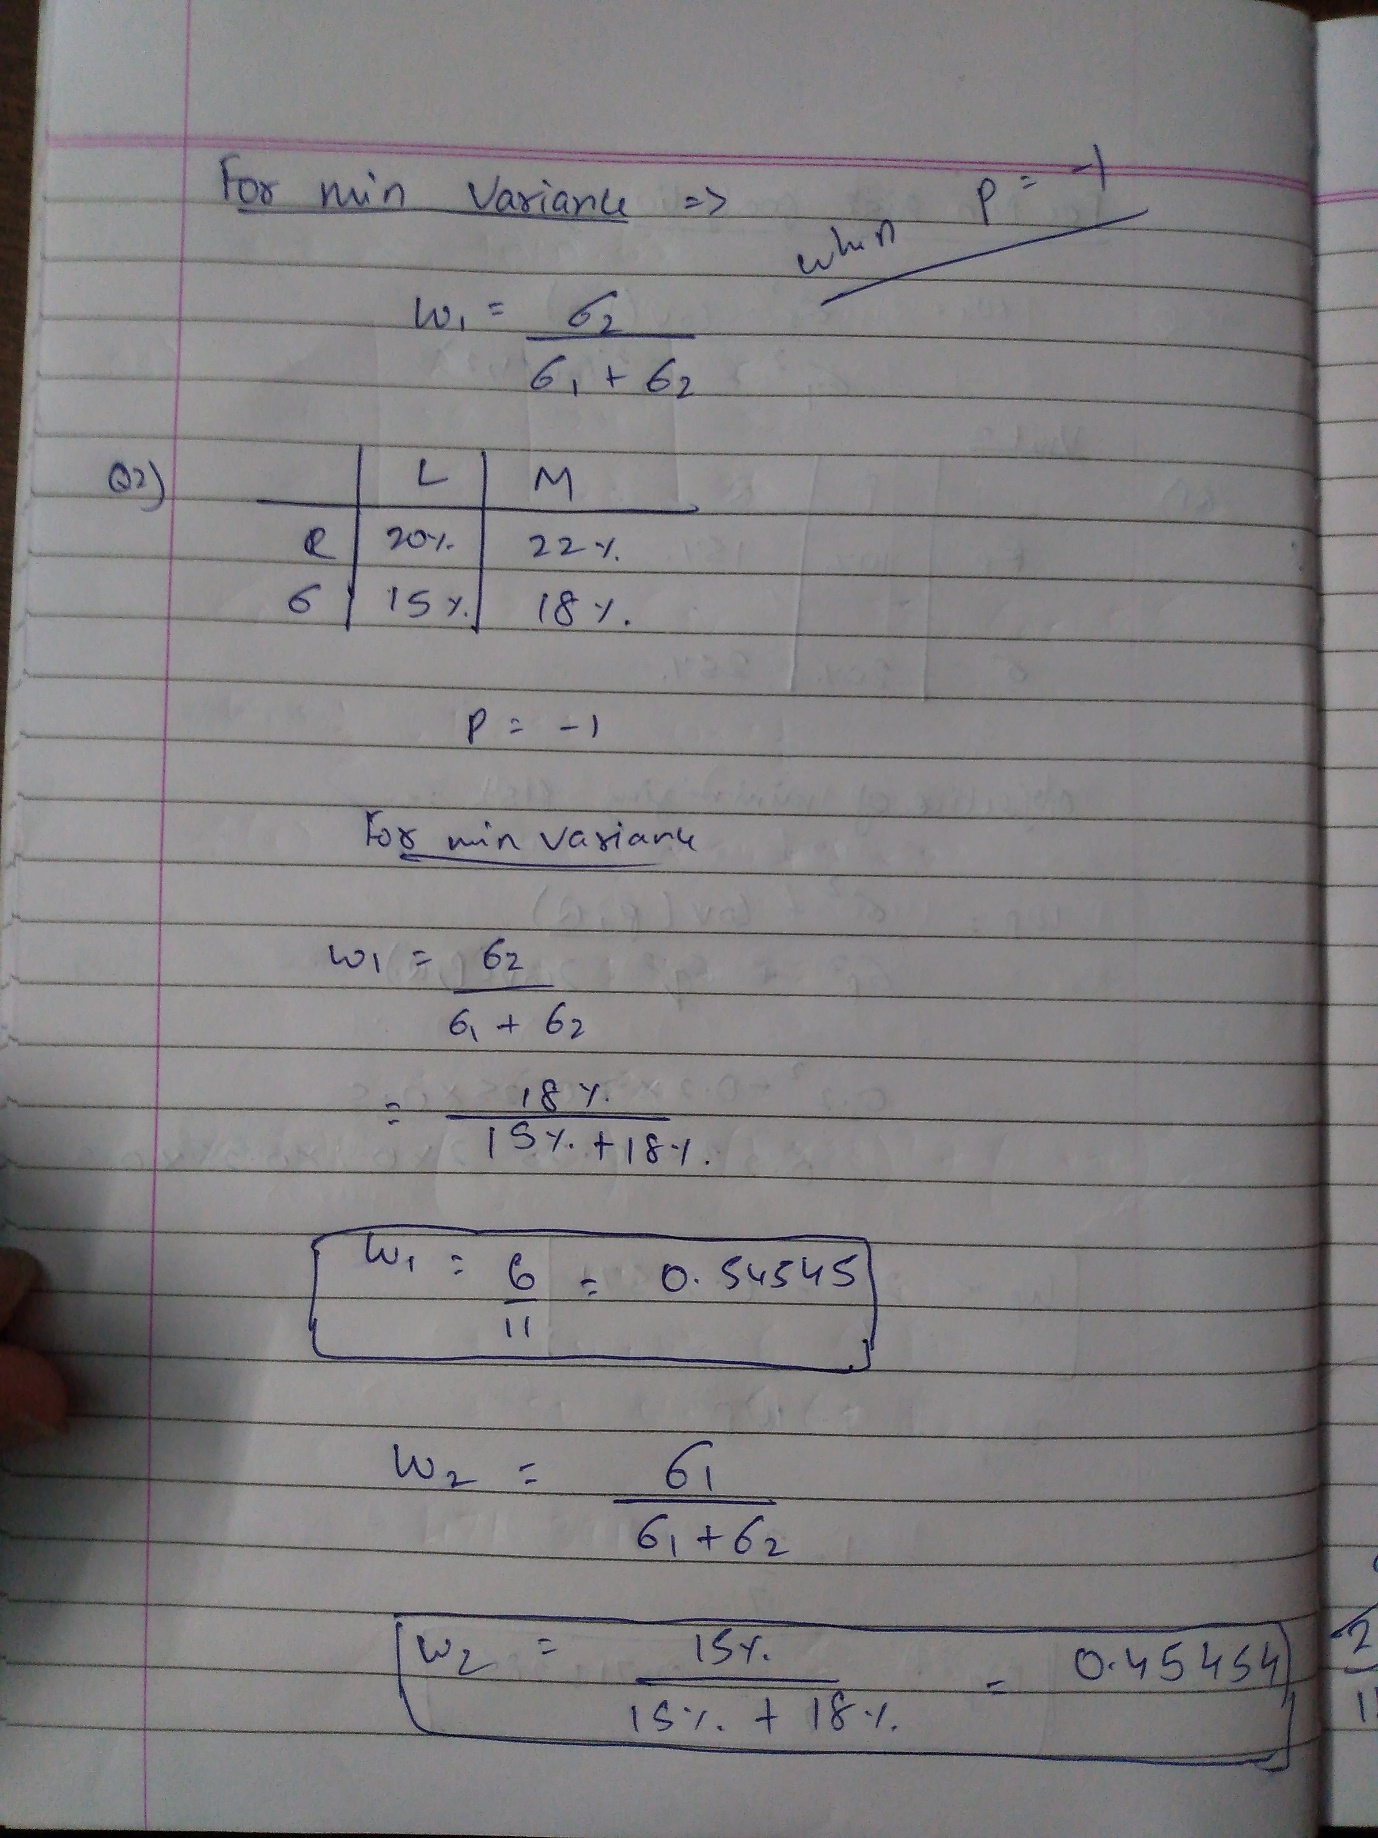 For min Variance => when p = -1
W₁ = σ₂
σ₁ + σ₂
Q2)
L M
R 20% 22%
σ 15% 18%
p = -1
For min variance
W₁ = σ₂
σ₁ + σ₂
= 18%
15% + 18%
W₁ = 6 = 0.54545
11
W₂ = σ₁
σ₁ + σ₂
W₂ = 15% = 0.45454
15% + 18%